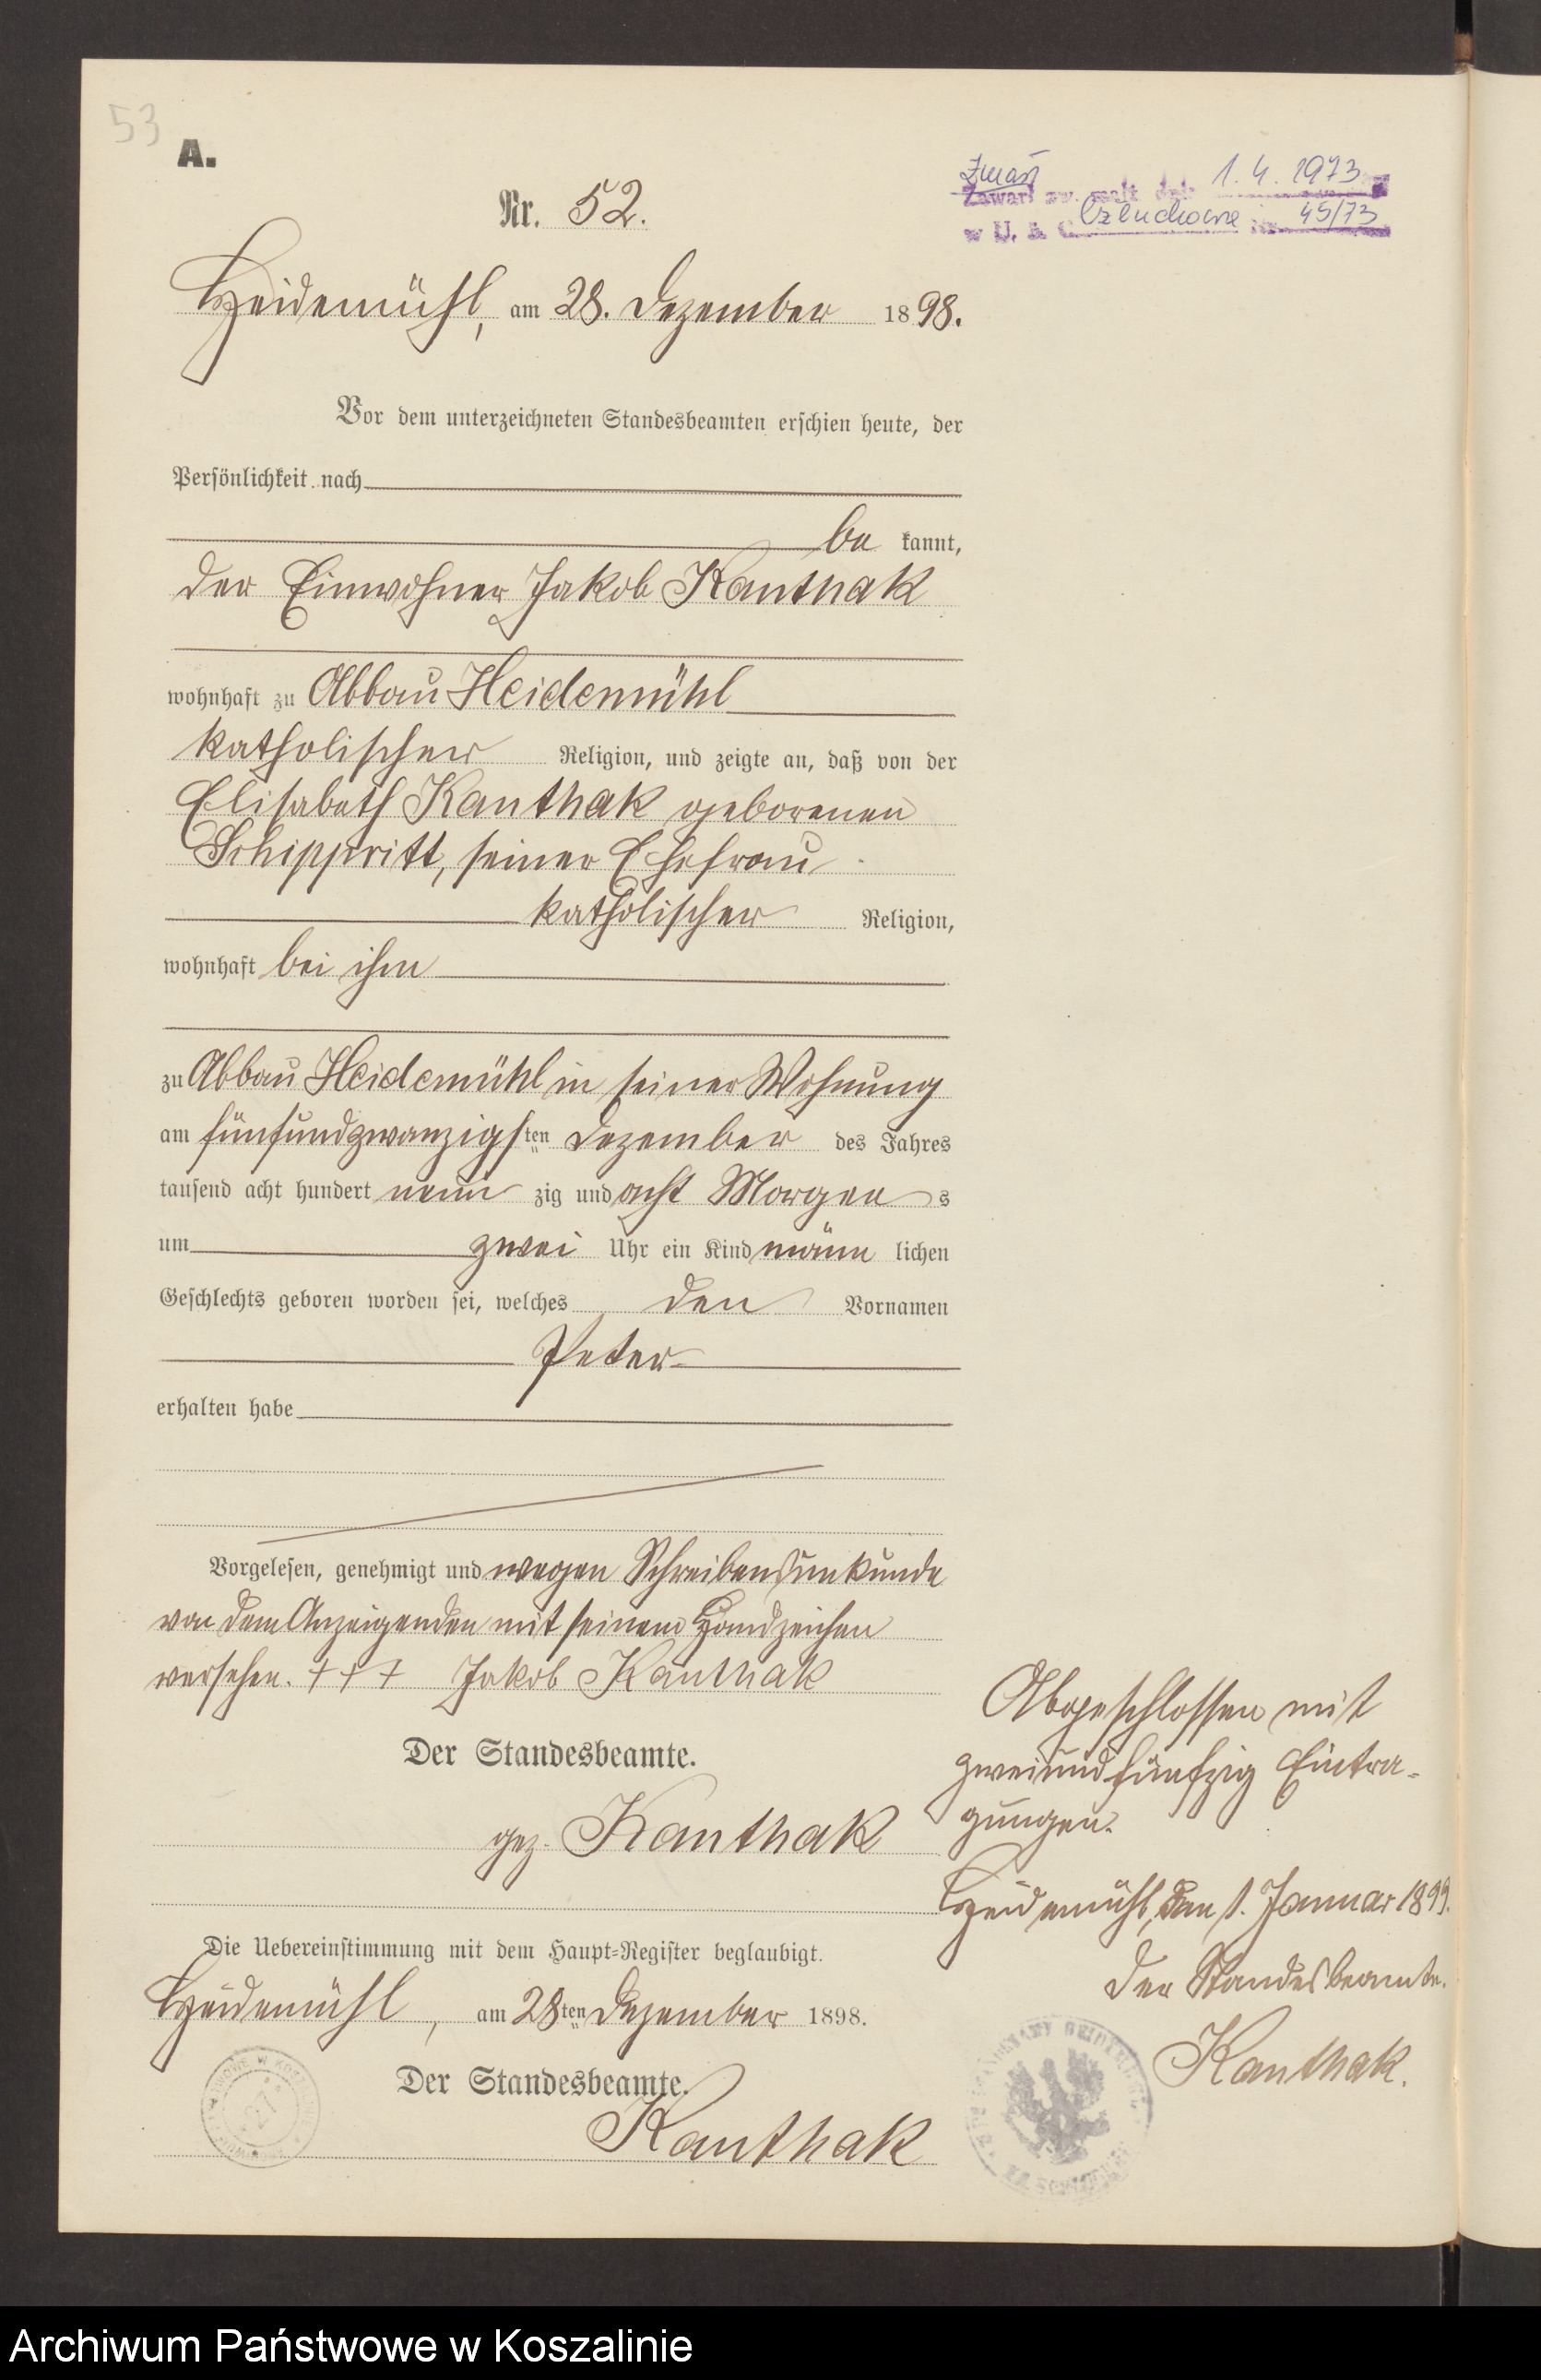 53
A.
Zmarł 1. 4. 1973
Zawarł zw. małż. dn.
w U. S. C. Człuchowie Nr. 45/73
Nr. 52.
Heidemühl, am 28. Dezember 1898.
Vor dem unterzeichneten Standesbeamten erschien heute, der
Persönlichkeit nach
be kannt,
der Einwohner Jakob Kanthak
wohnhaft zu Abbau Heidemühl
katholischer Religion, und zeigte an, daß von der
Elisabeth Kanthak geborenen
Schippritt, seiner Ehefrau
katholischer Religion,
wohnhaft bei ihm
zu Abbau Heidemühl in seiner Wohnung
am fünfundzwanzigsten Dezember des Jahres
tausend acht hundert neun zig und acht Morgen s
um zwei Uhr ein Kind männ lichen
Geschlechts geboren worden sei, welches den Vornamen
Peter
erhalten habe
Vorgelesen, genehmigt und wegen Schreibensunkunde
von dem Anzeigenden mit seinem Handzeichen
versehen. +++ Jakob Kanthak
Der Standesbeamte.
gez. Kanthak
Die Uebereinstimmung mit dem Haupt-Register beglaubigt.
Heidemühl, am 28ten Dezember 1898.
Der Standesbeamte.
Kanthak
Abgeschlossen mit
zweiundfünfzig Eintra-
gungen.
Heidemühl, den 1. Januar 1899.
Der Standesbeamte.
Kanthak.
27
Archiwum Państwowe w Koszalinie